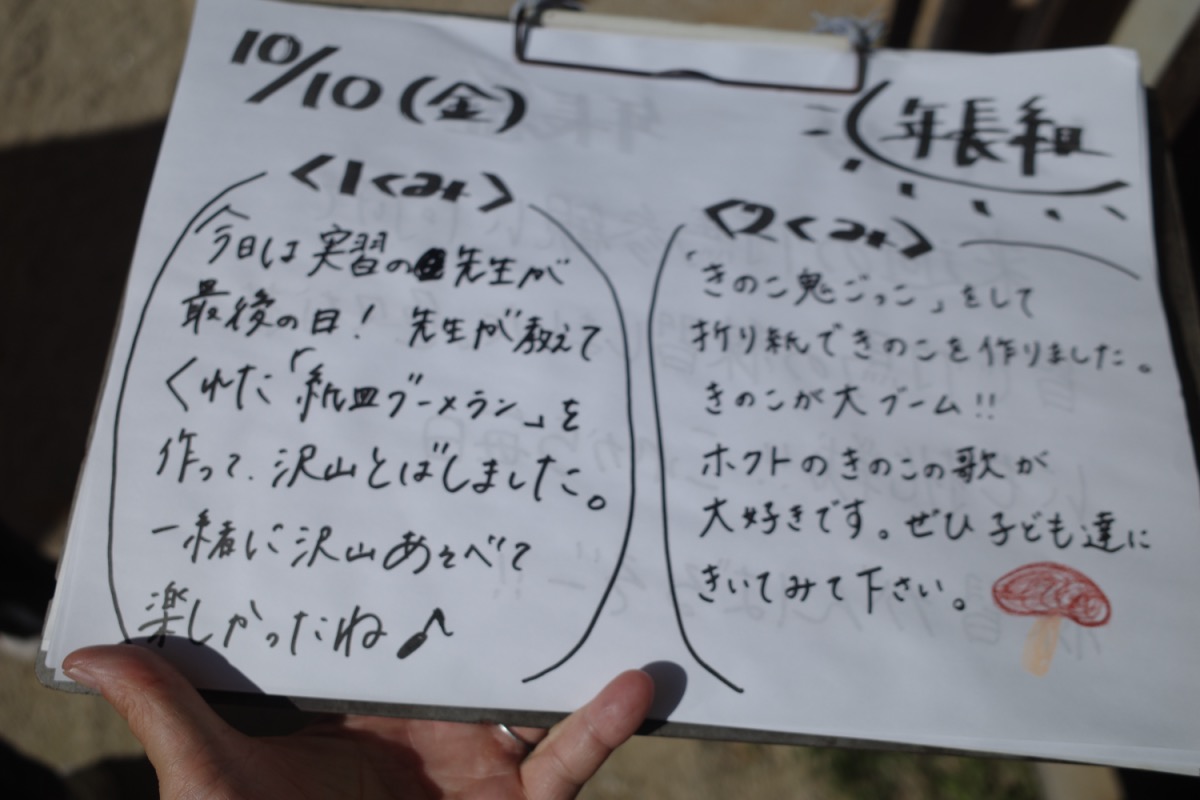 10/10(金)
年長組
〈1くみ〉
今日は実習の先生が
最後の日! 先生が教えて
くれた「紙皿ブーメラン」を
作って、沢山とばしました。
一緒に沢山あそべて
楽しかったね♪
〈2くみ〉
「きのこ鬼ごっこ」をして
折り紙できのこを作りました。
きのこが大ブーム!!
ホクトのきのこの歌が
大好きです。ぜひ子ども達に
きいてみて下さい。